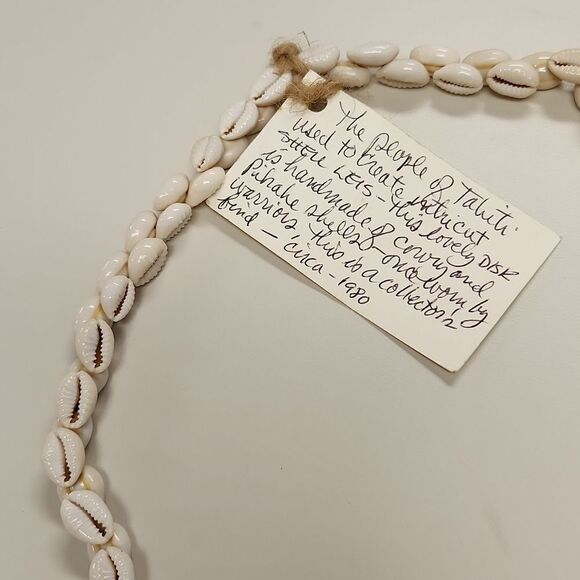 The people of Tahiti.
used to create intricut
SHELL LEIS - this lovely DISK
is handmade of cowry and
Pukahe shells once worn by
warriors this is a collector's
find - circa - 1980